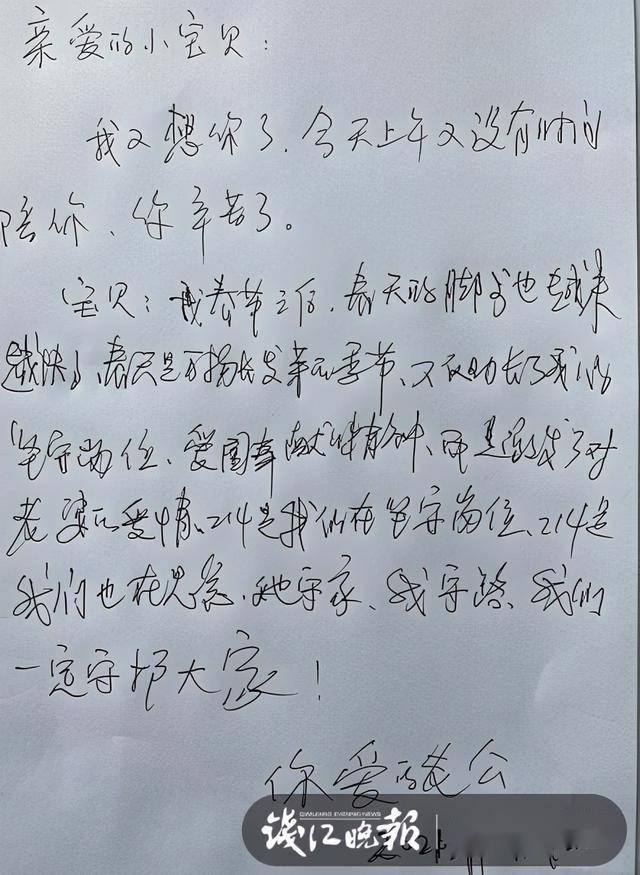 亲爱的小宝贝：
我又想你了.今天上午又没有时间
陪你、你辛苦了。
宝贝：春节之后.春天的脚步也越来
越快、春天是万物发芽的季节、不仅助长了我们的
坚守岗位、爱国奉献精神、而且激发了对
老婆的爱情、214是我们在坚守岗位、214是
我们也在思念.她守家、我守路、我们
一定守护大家！
你爱的老公
钱江晚报
QIANJIANG EVENING NEWS